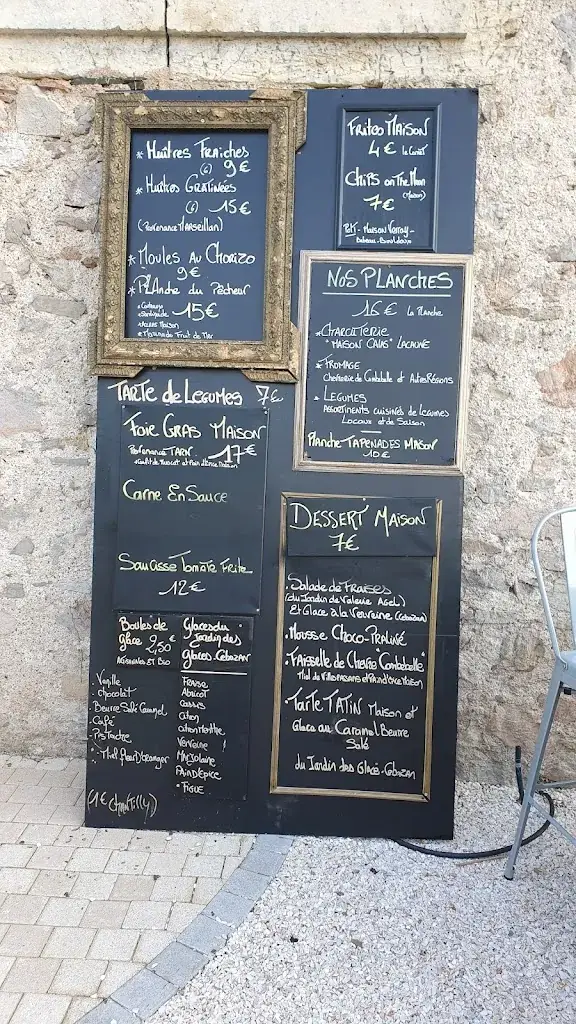 * Huîtres Fraîches
(6) 9€
* Huîtres Gratinées
(6) 15€
(Provenance Marseillan)
* Moules Au Chorizo
9€
* Planche du Pêcheur
15€
Maison
Fruit de Mer
Frites Maison
4€ le Cornet
Chips on The Moon
7€ (Maison)
Nos Planches
16€ La Planche
* Charcuterie
"Maison Calas" Lacaune
* Fromage
Chèvrerie de Combebelle et Autres Régions
* Legumes
Assortiments cuisinés de legumes
Locaux et de Saison
Planche Tapenades Maison
10€
Tarte de Legumes 7€
Foie Gras Maison
Provenance Tarn 17€
Carne En Sauce
Saucisse Tomate Frite
12€
Boules de
glace 2,50€
Artisanales et Bio
. Vanille
. Chocolat
. Beurre Salé Caramel
. Café
. Pistache
. Miel fleur d'oranger
(1€ Chantilly)
Glaces du
Jardin des
Glaces Cebazan
Fraise
Abricot
Cassis
Citron
Citron Menthe
Verveine
Marjolaine
Pain d'épice
* Figue
Dessert Maison
7€
. Salade de Fraises
(du Jardin de Valerie Agel)
Et Glace à la Verveine (Cebazan)
. Mousse Choco-Praliné
. Faisselle de Chèvre "Combebelle"
Miel de Villespassans et Pain d'épice Maison
. Tarte Tatin Maison et
Glace au Caramel Beurre
Salé
du Jardin des Glaces - Cebazan